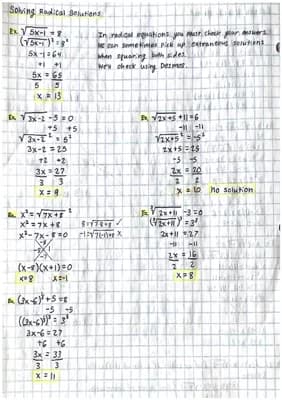 Solving Radical Solutions
Ex. √5x-1 = 8
(√5x-1)² = 8²
5x-1 = 64
+1 +1
5x = 65
5 5
x = 13
In radical equations, you must check your answers.
We can sometimes pick up extraneous solutions
when squaring both sides.
We'll check using Desmos.
Ex. √3x-2 -5 = 0
+5 +5
√3x-2² = 5²
3x-2 = 25
+2 +2
3x = 27
3 3
x = 9
Ex. √2x+5 +11 = 6
-11 -11
√2x+5² = -5²
2x+5 = 25
-5 -5
2x = 20
2 2
x = 10 no solution
Ex. x² = √7x+8²
x² = 7x+8
x²-7x-8=0
-8
-8 1
-7
(x-8)(x+1)=0
x=8 x=-1
8=√7·8+8 ✓
-1=√7(-1)+8 x
Ex. ∛2x+11 -3 = 0
(∛2x+11)³ = 3³
2x+11 = 27
-11 -11
2x = 16
2 2
x = 8
Ex. (3x-6)
+5 = 8
-5 -5
= 3³
3x-6 = 27
+6 +6
3x = 33
3 3
x = 11